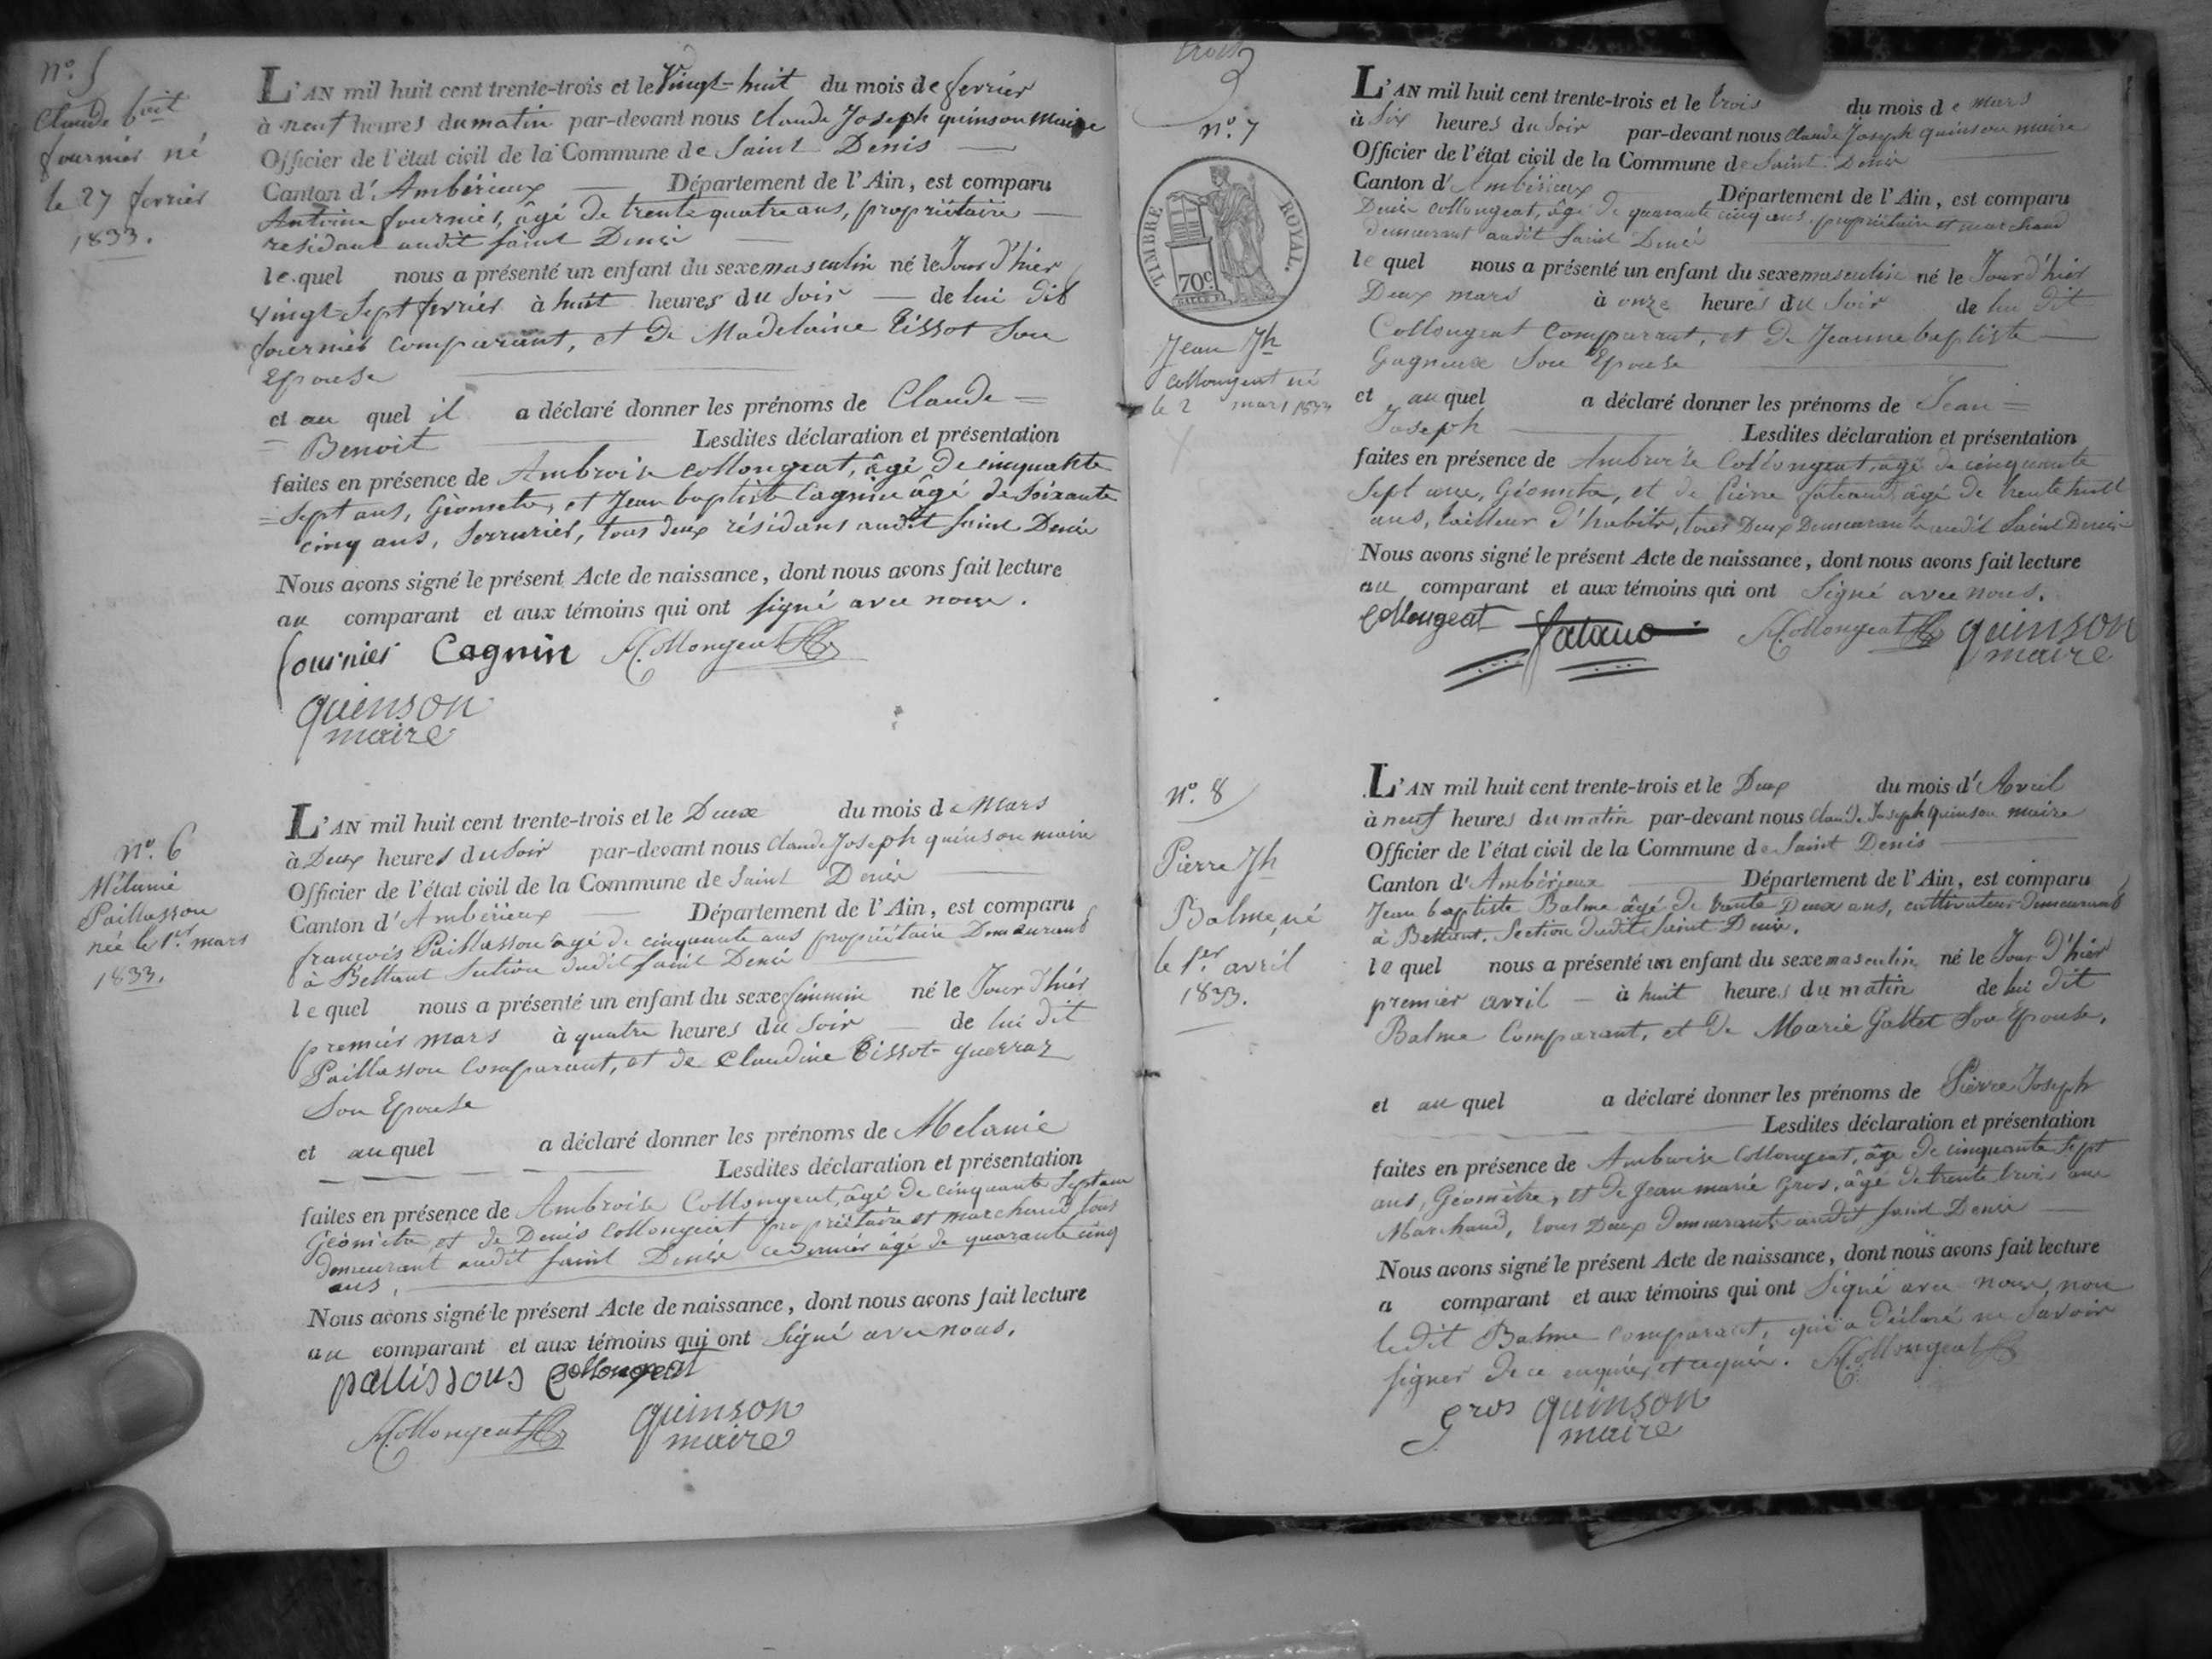 n.° 5
Claude b.oit
fournier né
le 27 fevrier
1833.
L'AN mil huit cent trente-trois et le Vingt-huit du mois de fevrier
à neuf heures du matin par-devant nous Claude Joseph quinson Maire
Officier de l'état civil de la Commune de Saint Denis
Canton d'Ambérieux Département de l'Ain, est comparu
Antoine fournier, âgé de trente quatre ans, propriétaire
residant audit saint Denis
le quel nous a présenté un enfant du sexe masculin né le Jour d'hier
vingt-Sept fevrier à huit heures du Soir — de lui dit
fournier comparant, et de Madelaine Tissot Son
Epouse
et au quel il a déclaré donner les prénoms de Claude =
= Benoit Lesdites déclaration et présentation
faites en présence de Ambroise Collongeat, âgé de cinquante
= Sept ans, Géometre, et Jean baptiste Cagnin âgé de Soixante
cinq ans, Serrurier, tous deux résidans audit saint Denis
Nous avons signé le présent Acte de naissance, dont nous avons fait lecture
au comparant et aux témoins qui ont signé avec nous.
fournier Cagnin Collongeat
quinson
maire
n.° 6
Mélanie
Paillasson
née le 1.er mars
1833.
L'AN mil huit cent trente-trois et le Deux du mois de Mars
à Deux heures du Soir par-devant nous Claude Joseph quinson maire
Officier de l'état civil de la Commune de Saint Denis
Canton d'Ambérieux Département de l'Ain, est comparu
françois Paillasson âgé de cinquante ans propriétaire Demeurant
à Bettant Section dudit saint Denis
le quel nous a présenté un enfant du sexe féminin né le Jour d'hier
premier mars à quatre heures du Soir — de lui dit
Paillasson Comparant, et de Claudine Tissot-guerraz
Son Epouse
et au quel a déclaré donner les prénoms de Melanie
Lesdites déclaration et présentation
faites en présence de Ambroise Collongeat, âgé de cinquante Sept ans
Géomètre, et de Denis Collongeat propriétaire et marchand, tous
demeurant audit saint Denis ce dernier âgé de quarante cinq
ans,
Nous avons signé le présent Acte de naissance, dont nous avons fait lecture
au comparant et aux témoins qui ont Signé avec nous.
paillissous Collongeat
Collongeat quinson
maire
trois
3
n.° 7
TIMBRE ROYAL.
70.c
Jean Jh
Collongeat né
le 2 mars 1833
L'AN mil huit cent trente-trois et le trois du mois de mars
à Six heures du Soir par-devant nous Claude Joseph quinson maire
Officier de l'état civil de la Commune de Saint Denis
Canton d'Ambérieux Département de l'Ain, est comparu
Denis Collongeat, âgé de quarante cinq ans, propriétaire et marchand
demeurant audit Saint Denis
le quel nous a présenté un enfant du sexe masculin né le Jour d'hier
Deux mars à onze heures du Soir de lui dit
Collongeat Comparant, et de Jeanne baptiste
Gagneux Son Epouse
et au quel a déclaré donner les prénoms de Jean =
Joseph Lesdites déclaration et présentation
faites en présence de Ambroise Collongeat, âgé de cinquante
Sept ans, Géometre, et de Pierre âgé de trente huit
ans, tailleur d'habits, tous Deux Demeurants audit Saint Denis
Nous avons signé le présent Acte de naissance, dont nous avons fait lecture
au comparant et aux témoins qui ont Signé avec nous.
Collongeat Collongeat quinson
maire
n.° 8
Pierre Jh
Balme, né
le 1.er avril
1833.
L'AN mil huit cent trente-trois et le Deux du mois d'Avril
à neuf heures du matin par-devant nous Claude Joseph quinson maire
Officier de l'état civil de la Commune de Saint Denis
Canton d'Ambérieux Département de l'Ain, est comparu
Jean baptiste Balme âgé de trente Deux ans, cultivateur demeurant
à Bettant, Section dudit Saint Denis.
le quel nous a présenté un enfant du sexe masculin né le Jour d'hier
premier avril — à huit heures du matin de lui dit
Balme Comparant, et de Marie Gallet Son Epouse,
et au quel a déclaré donner les prénoms de Pierre Joseph
Lesdites déclaration et présentation
faites en présence de Ambroise Collongeat, âgé de cinquante Sept
ans, Géomètre, et de Jean marie Gros, âgé de trente trois ans
Marchand, tous Deux demeurants audit saint Denis
Nous avons signé le présent Acte de naissance, dont nous avons fait lecture
a comparant et aux témoins qui ont Signé avec nous, non
ledit Balme comparant, qui a déclaré ne Savoir
signer de ce enquis et requis. Collongeat
gros quinson
maire